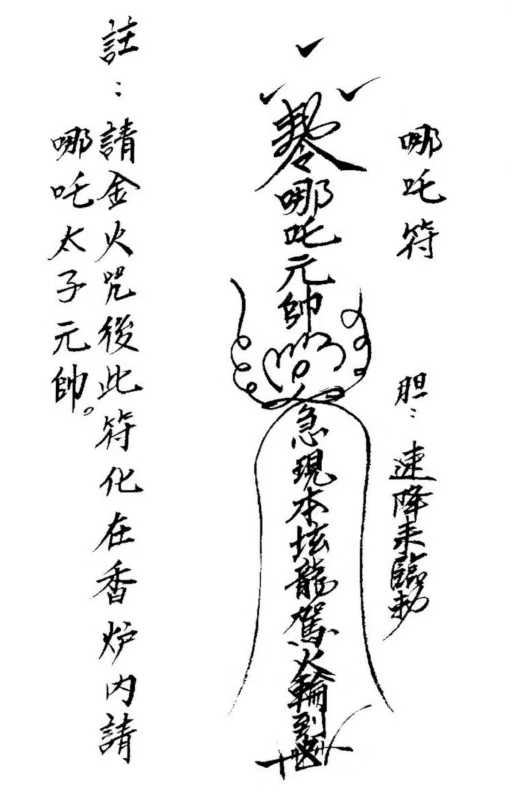 哪吒符
胆：速降来臨勅
哪吒元帥
急現本坛龍駕火輪到
註：請金火咒後此符化在香炉内請
哪吒太子元帥。